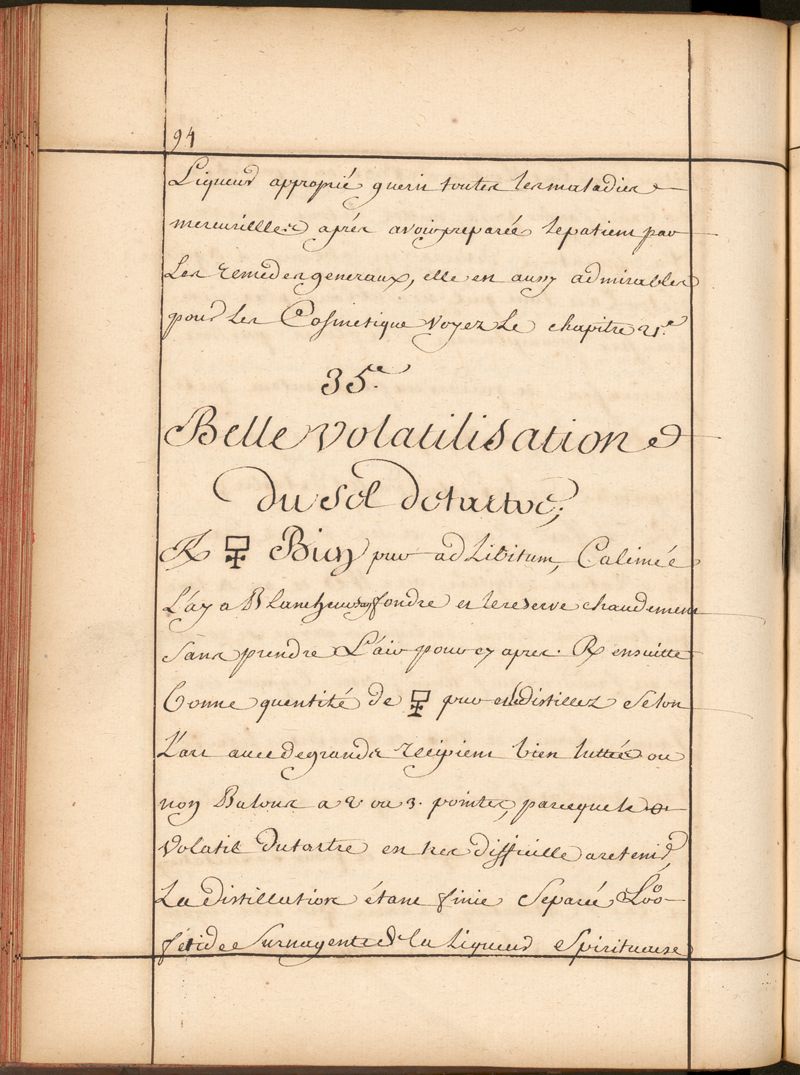 94
Liqueur approprié guerit toutes les maladies
merveilles après avoir preparée le patient par
Les remedes generaux, elle est aussy admirables
pour Les Cosmetique Voyez Le chapitre 21.e
35.e
Belle volatilisation
du sel de tartre;
℞ Bien pur ad Libitum, Calcinée
L'ay a Blancheur fondre et le reserve chaudement
sans prendre L'air pour cy apres. ℞ ensuitte
bonne quantité de pur et distillez selon
L'art avec de grands recipient bien luttées ou
non Balons a 2 ou 3. pointes, parceque le
Volatil du tartre est tres difficille a retenir,
La distillation étant finie separée L'
fétide surnagente la Liqueur spiritueuse